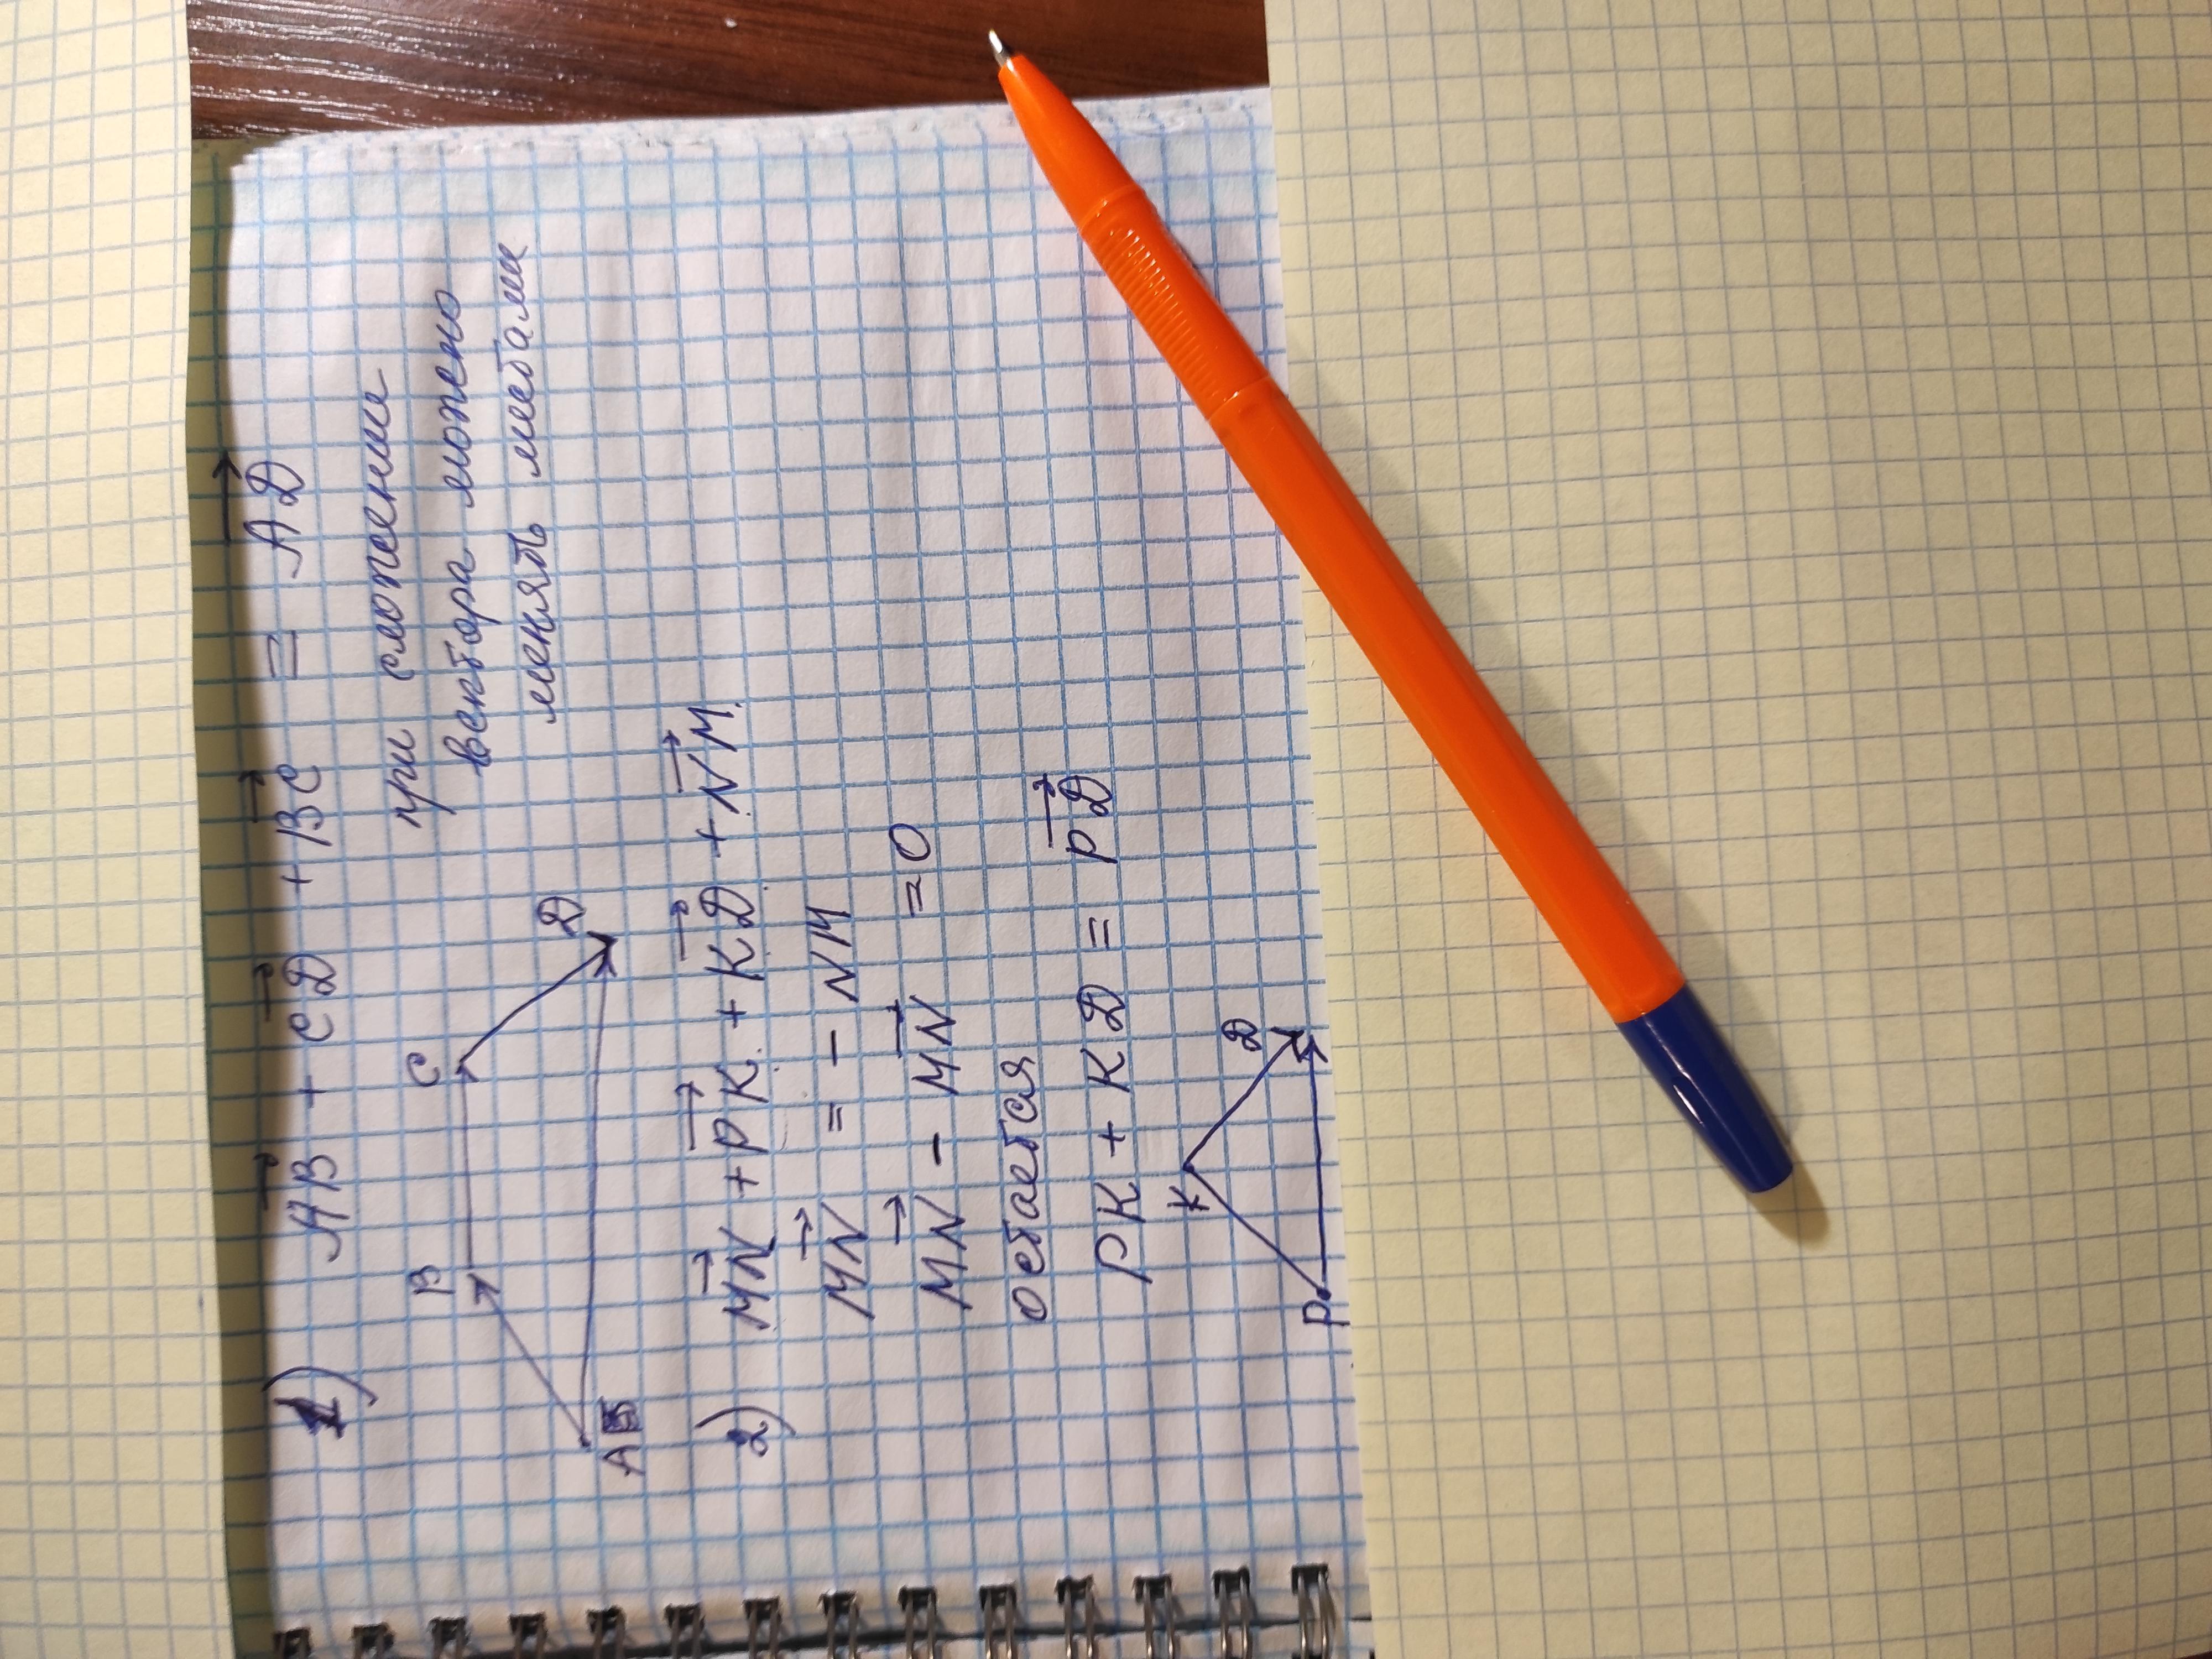 1) AB + CД + BC = AД
при сложение
вектора можно
менять местами
B C
A Д
2) MN + PK + KД + NM.
MN = - NM
MN - MN = 0
остаётся
PK + KД = PД
K Д
P